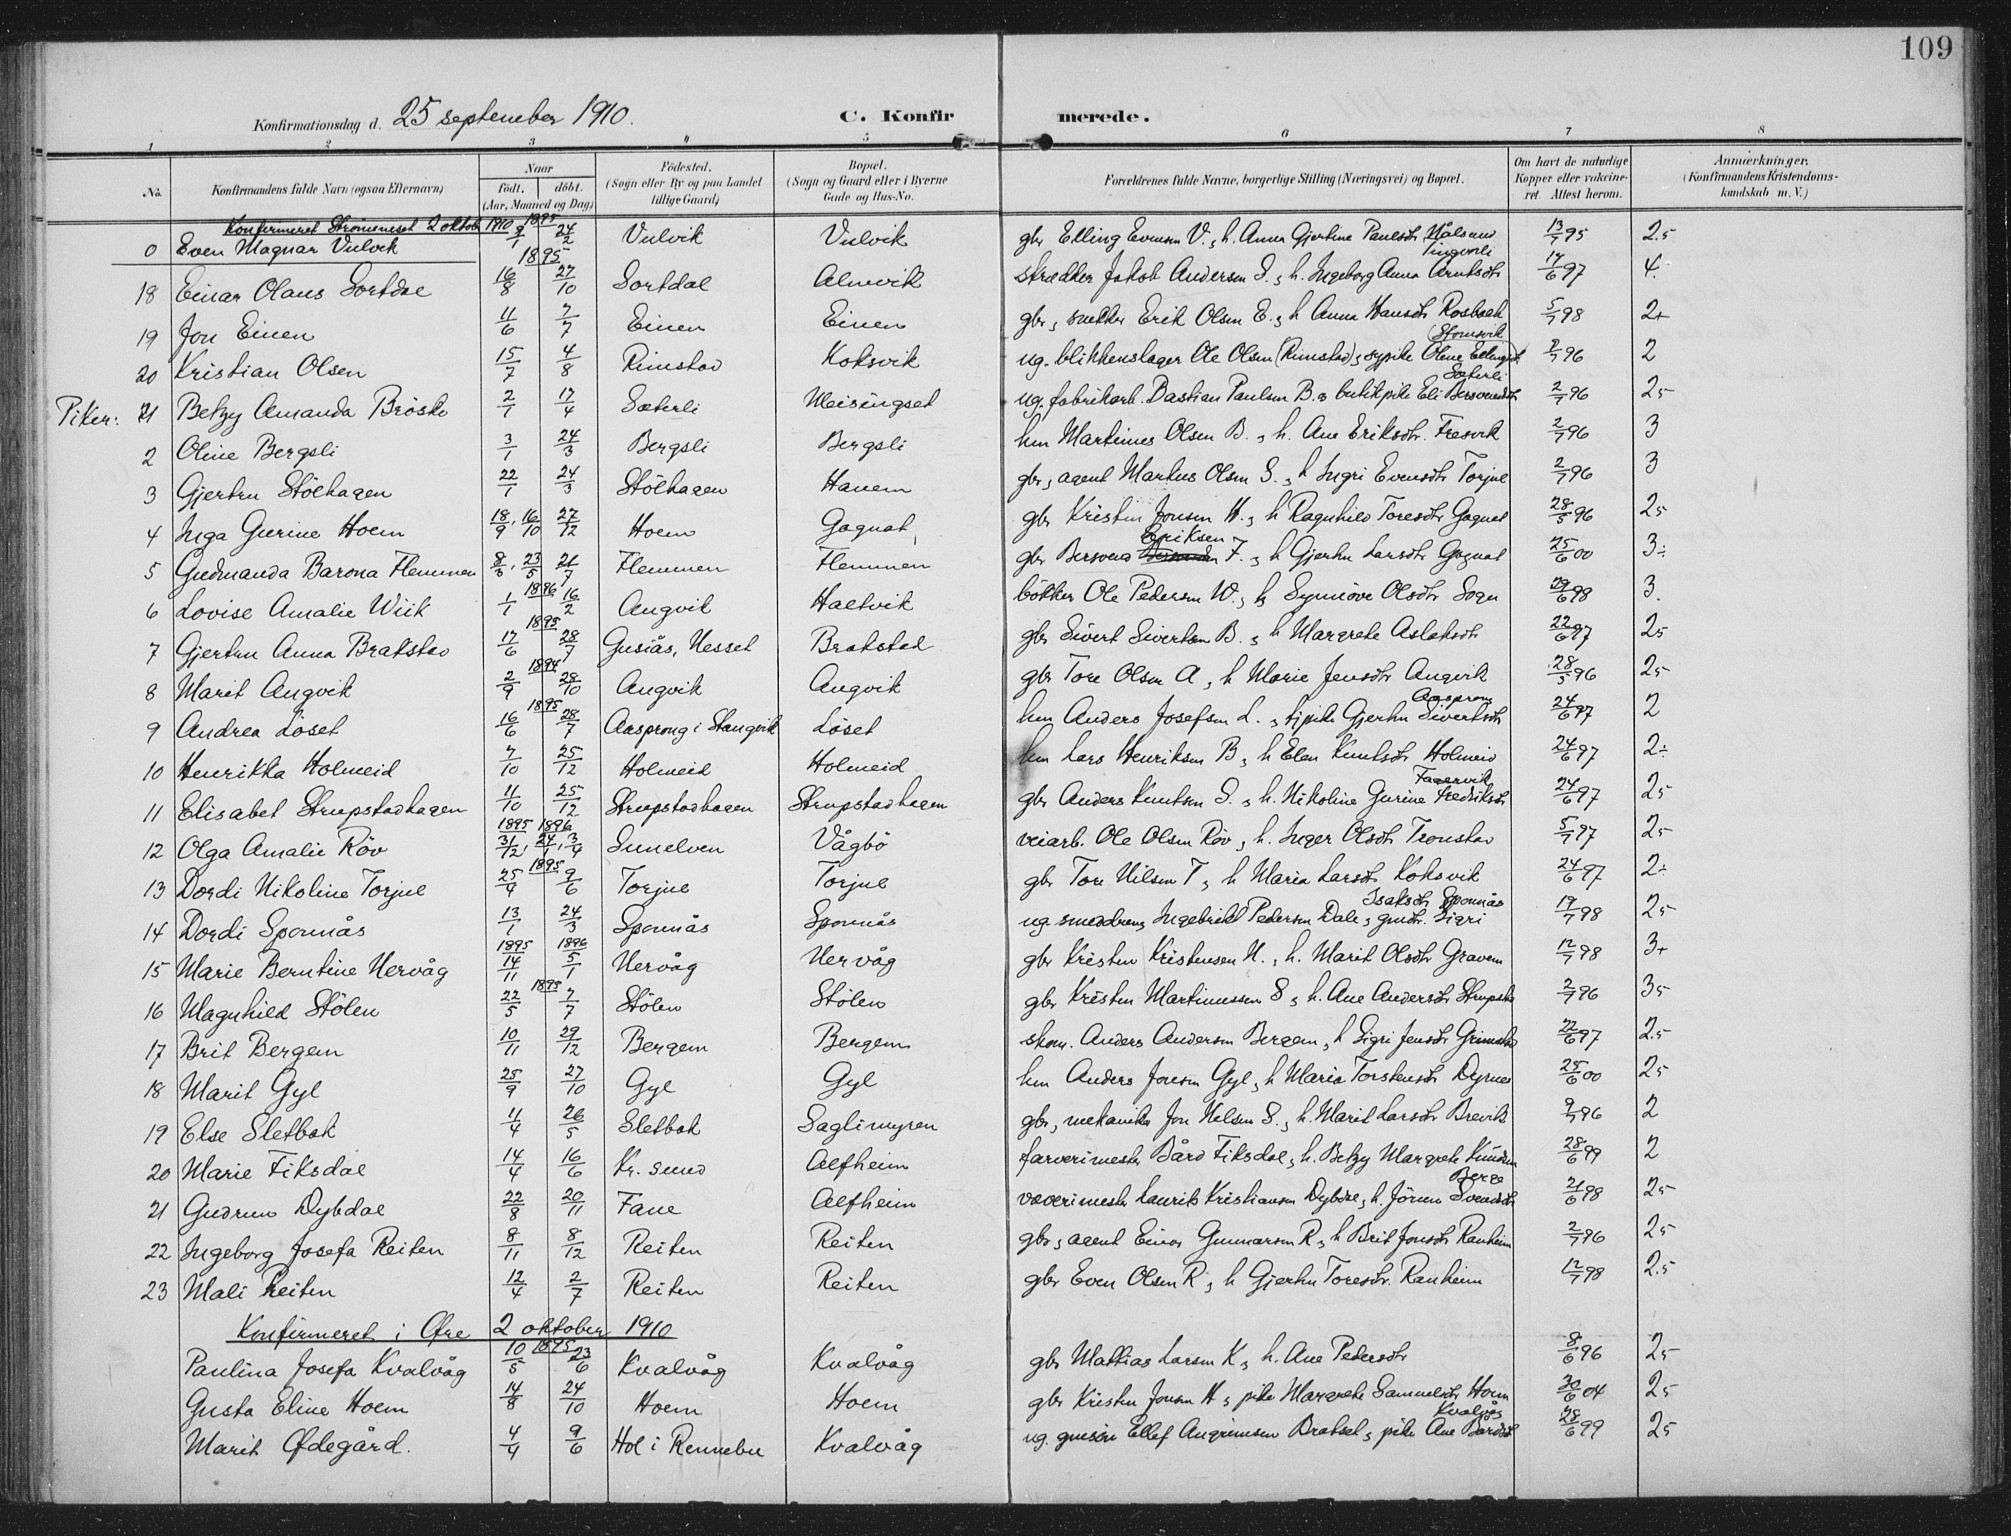 109
Konfirmationsdag d. 25 september 1910. C. Konfirmerede.
1 2 3 4 5 6 7 8
No. Konfirmandens fulde Navn (ogsaa Efternavn) Naar født. døbt. (Aar, Maaned og Dag) Fødested. (Sogn eller By og paa Landet tillige Gaard) Bopæl. (Sogn og Gaard eller i Byerne Gade og Hus-No. Forældrenes fulde Navne, borgerlige Stilling (Næringsvei) og Bopæl. Om havt de naturlige Kopper eller vakcineret. Attest herom. Anmærkninger. (Konfirmandens Kristendomskundskab m. V.)
Konfirmeret Strømsneset 2 oktob 1910 1895
0 Even Magnar Vulvik 24/2 Vulvik Vulvik gbr Elling Evensen V. , h. Anna Gjertine Paulsdtr Nålsund 13/7 95 2.5
1895 Tingvoll
18 Einar Olaus Sortdal 16/8 27/10 Sortdal Almvik skrædder Jakob Andersen S. , h. Ingeborg Anna Arntsdtr 14/6 97 4.
19 Jon Einen 11/6 7/7 Einen Einen gbr, snekker Erik Olsen E. , h Anna Hansdtr Rosbak 5/7 98 2+
20 Kristian Olsen 15/7 4/8 Rimstad Koksvik ug. blikkenslager Ole Olsen (Rimstad) , sypike Oline Ellingsdtr 2/7 96 2
Sæterli
Piker: 21 Betzy Amanda Brøske 2/1 17/4 Sæterli Meisingset ug. fabrikarb. Bastian Paulsen B. , butikpike Eli Bersvendsdtr 2/7 96 25
2 Oline Bergsli 3/1 24/3 Bergsli Bergsli hm Martinus Olsen B. , h. Ane Eriksdtr. Fresvik 2/7 96 3
3 Gjertru Stölhagen 22/1 24/3 Stölhagen Hanem gbr, agent Markus Olsen S. , h Ingri Evensdtr Torjul 2/7 96 3
4 Inga Gurine Hoem 18/9 , 16/10 27/12 Hoem Gagnat gbr Kristen Jonsen H. , h Ragnhild Toresdtr Gagnat 28/5 96 25
Eriksen
5 Gudmanda Barona Flemmen 8/3 , 23/5 21/7 Flemmen Flemmen gbr Bersvend F. , h Gjertru Larsdtr Gagnat 25/6 00 3÷
1896
6 Lovise Amalie Wiik 1/1 16/2 Angvik Haltvik bökker Ole Pedersen W. , h Synnöve Olsdtr Sogn 29/6 98 3.
1895
7 Gjertru Anna Brakstad 17/6 28/7 Gusiås, Nesset Brakstad gbr Sivert Sivertsen B. , h Margrete Aslaksdtr 22/6 97 25
1894
8 Marit Angvik 2/9 28/10 Angvik Angvik gbr Tore Olsen A , h Marie Jensdtr Angvik 28/5 96 25
1895 Aasprong
9 Andrea Löset 16/6 28/7 Aasprong i Stangvik Löset hm Anders Josefsen L. , tjpike Gjertru Sivertsdtr 24/6 97 2
10 Henrikka Holmeid 7/10 25/12 Holmeid Holmeid hm Lars Henriksen B , h Elen Knutsdtr Holmeid 24/6 97 2÷
11 Elisabet Strupstadhagen 11/10 25/12 Strupstadhagen Strupstadhagen gbr Anders Knutsen S. , h. Nikoline Gurine Fredriksdtr 24/6 97 25
1895 1896
12 Olga Amalie Röv 31/12 , 24/1 3/4 Sunelven Vågbö veiarb. Ole Olsen Röv , h. Inger Olsdtr Tronstad 5/7 97 25
1895
13 Dordi Nikoline Torjul 25/4 9/6 Torjul Torjul gbr Tore Nilsen T , h Maria Larsdtr Koksvik 24/6 97 2÷
Isaksdtr Sponnås
14 Dordi Sponnås 13/1 24/3 Sponnås Sponnås ug. smeddreng Ingebrikt Pedersen Dale , gmdtr. Sigri 19/7 98 25
1895 1896
15 Marie Berntine Nervåg 14/11 5/1 Nervåg Nervåg gbr Kristen Kristensen N. , h. Marit Olsdtr Gravem 12/7 98 3+
1895
16 Magnhild Stölen 22/5 7/7 Stölen Stölen gbr Kristen Martinussen S , h. Ane Andersdtr Strupstad 2/7 96 35
17 Brit Bergem 10/11 29/12 Bergem Bergem skom. Anders Andersen Bergem , h Sigri Jensdtr 22/6 97 2.5
18 Marit Gyl 25/9 27/10 Gyl Gyl hm Anders Jonsen Gyl , h Maria Torstensdtr Dyrnes 25/6 00 25
19 Else Sletbak 11/4 26/5 Sletbak Saglimyren gbr, mekaniker Jon Nilsen S. , h. Marit Larsdtr Brevik 9/7 96 2
20 Marie Fiksdal 14/4 16/6 Kr. sund Alfheim farverimester Bård Fiksdal , h. Betzy Margrete Knudsen 28/6 99 2
Berge
21 Gudrun Dybdal 22/8 20/11 Fane Alfheim væverimester Laurits Kristiansen Dybdal , h. Jörnn Svendsdtr 21/6 98 25
22 Ingeborg Josefa Reiten 8/11 8/12 Reiten Reiten gbr, agent Einar Gunnarsen R , h Brit Jonsdtr Ranheim 2/7 96 25
23 Mali Reiten 12/4 2/7 Reiten Reiten gbr Even Olsen R , h Gjertru Toresdtr. Ranheim 12/7 98 2.5
Konfirmeret i Øre 2 oktober 1910
1895
Paulina Josefa Kvalvåg 10/5 23/6 Kvalvåg Kvalvåg gbr Mathias Larsen K , h. Ane Pedersdtr 8/6 96 25
Gusta Eline Hoem 14/8 24/10 Hoem Hoem gbr Kristen Jonsen H , pike Margrete Samuelsdtr Hoem 30/6 04 25
Kvalvåg
Marit Ødegård. 4/4 9/6 Hol i Rennebu Kvalvåg ug. gmsön Ellef Angrimsen Brakset , pike Ane Bårdsdtr 28/6 99 25